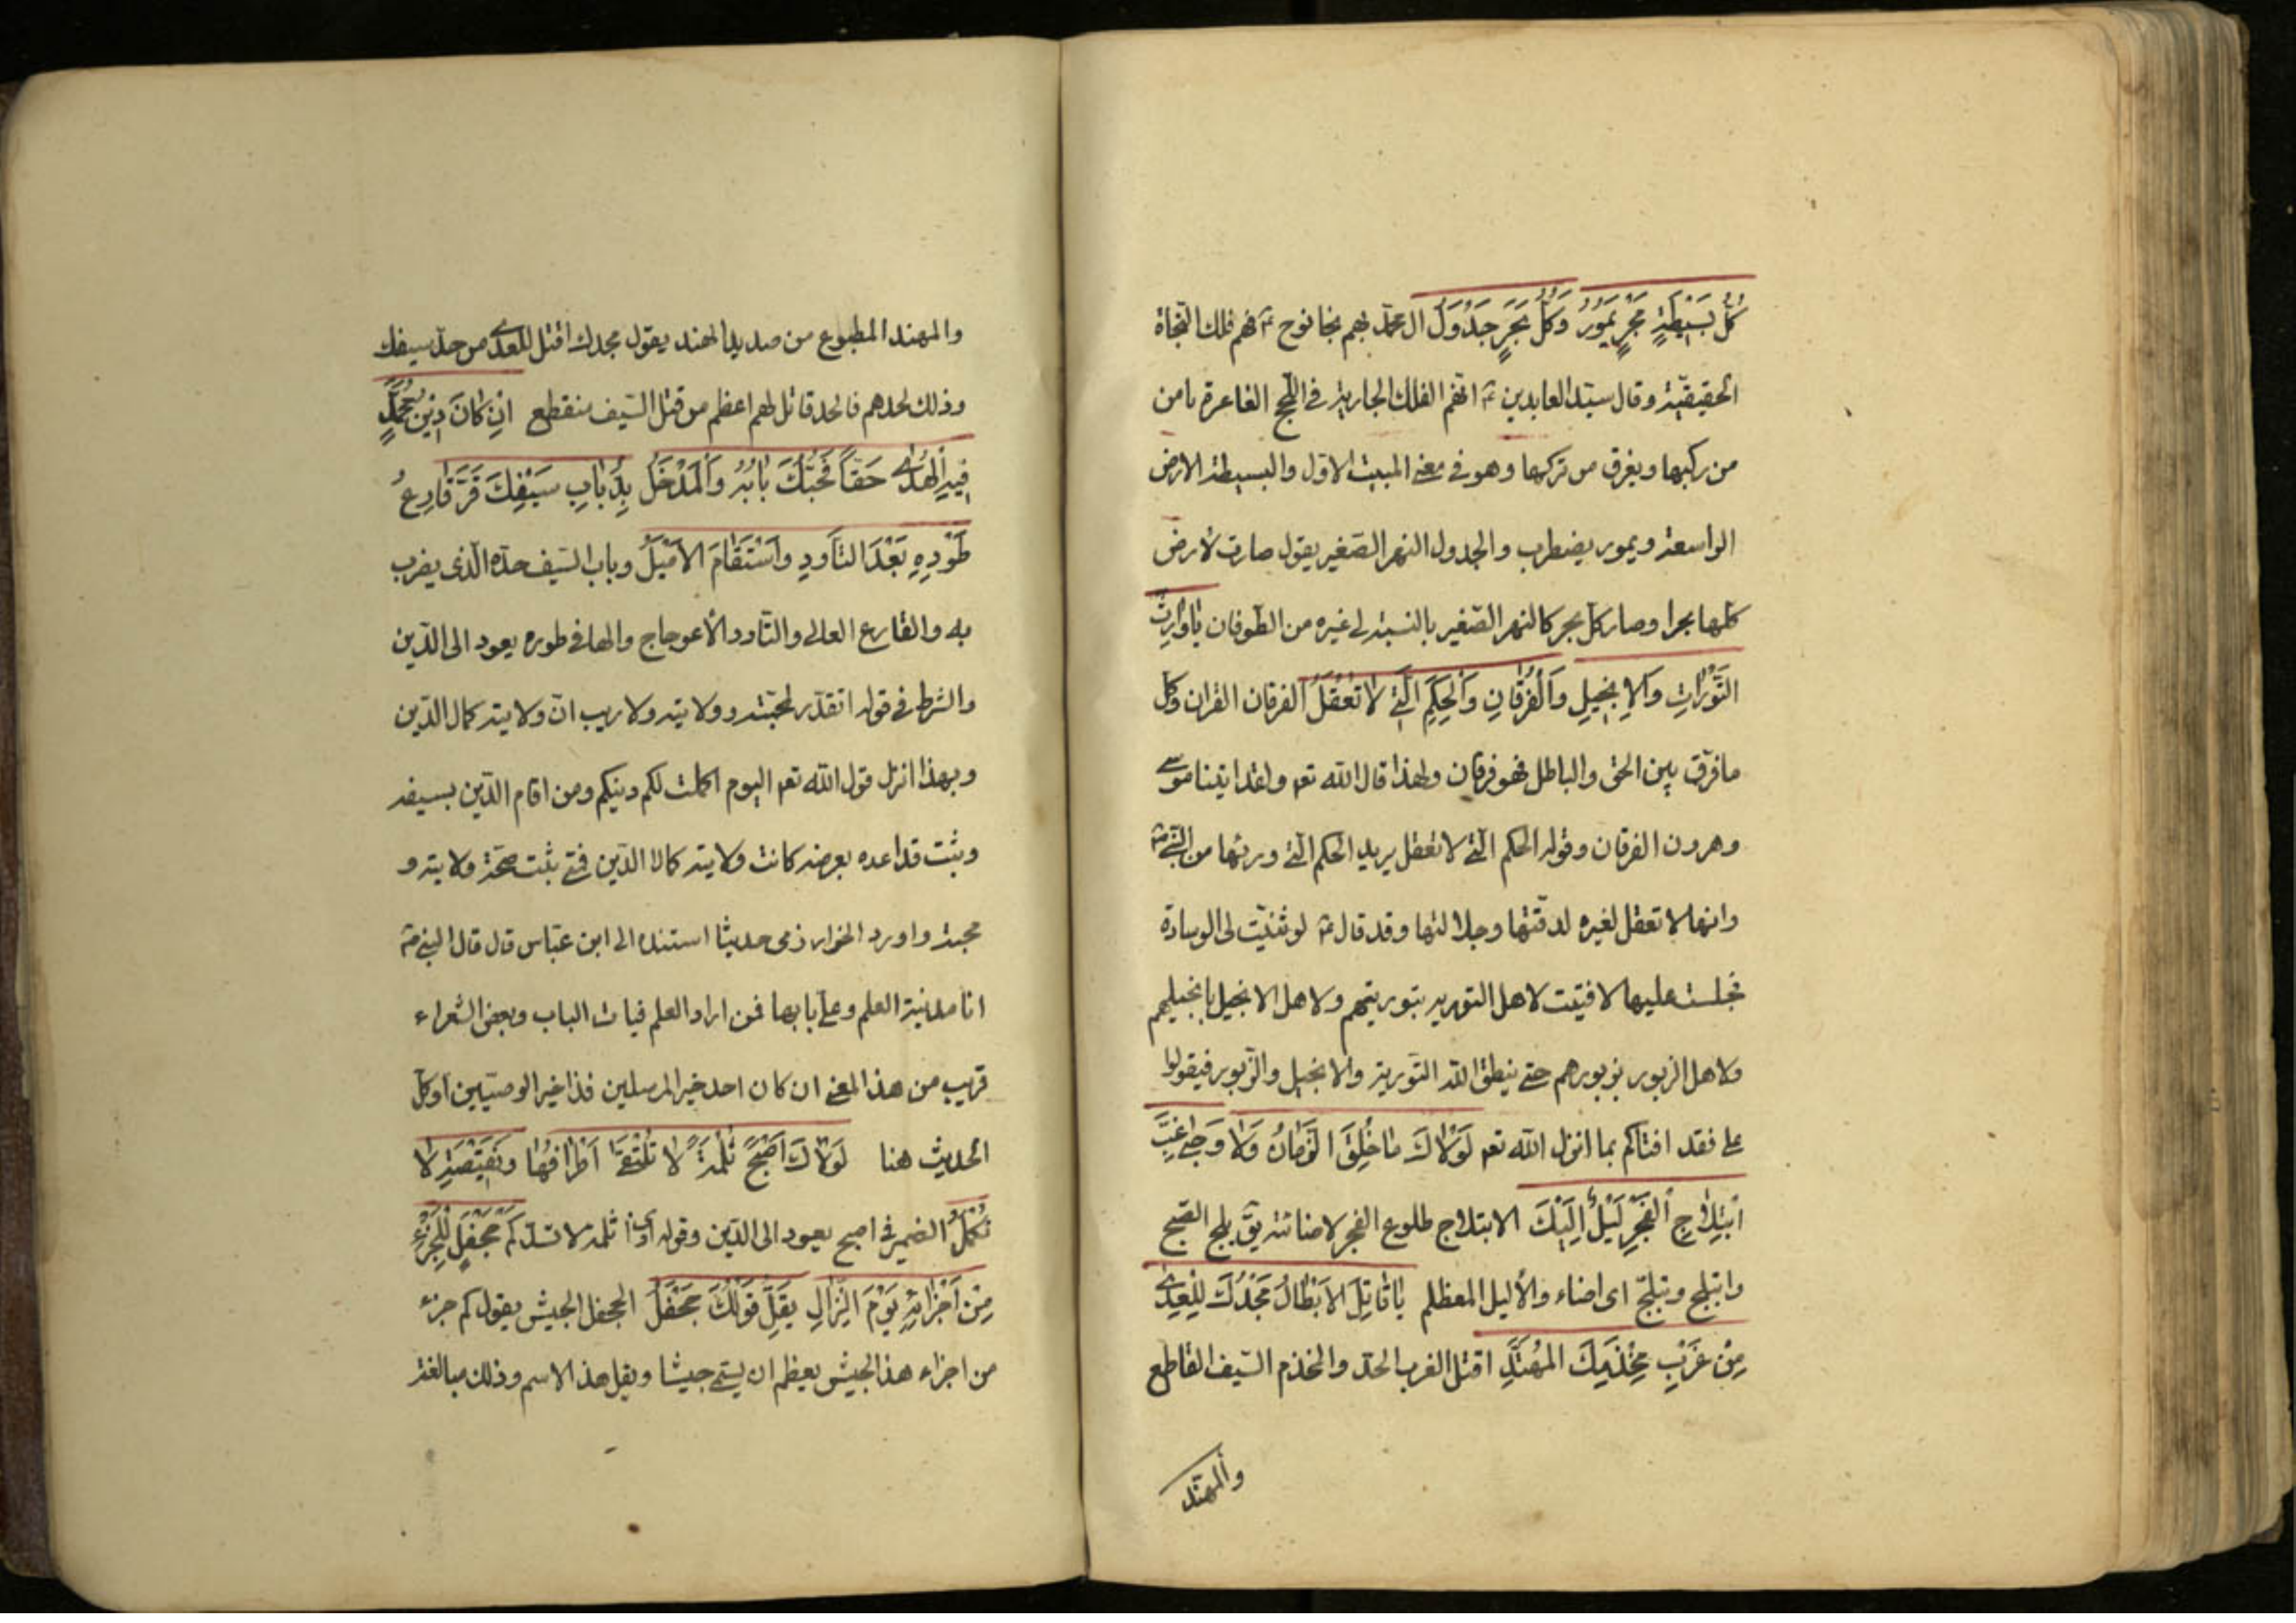 كُلُّ بَسِيطَةٍ بَحْرٍ يَمُورُ وَكُلُّ بَحْرٍ جَدْوَلُ ال محمد بهم نجا نوح ع فهم فلك النجاة
الحقيقية وقال سيد العابدين ع انهم الفلك الجارية في اللجج الغامرة يامن
من ركبها ويغرق من تركها وهو في معنى البيت الاول والبسيطة الارض
الواسعة ويمور يضطرب والجدول النهر الصغير يقول صارت لارض
كلها بحرا وصار كل بحر كالنهر الصغير بالنسبة لى غيره من الطوفان يَا وَارِثَ
التَّوْرَاتِ وَالإِنْجِيلِ وَالْفُرْقَانِ وَالْحِكَمِ الَّتِي لاَ تُعْقَلُ الفرقان القران وكل
ما فرق بين الحق والباطل فهو فرقان ولهذا قال الله تعم ولقد اتينا موسى
وهرون الفرقان وقوله الحكم التي لا تعقل يريد الحكم التي ورثها من النبي ص
وانها لا تعقل لغيره لدقتها وجلالتها وقد قال ع لو ثنيت لى الوسادة
فجلست عليها لافتيت لاهل التورية بتوريتهم ولاهل الانجيل بانجيلهم
ولاهل الزبور بزبورهم حتى ينطق الله التورية والانجيل والزبور فيقولوا
على فقد افتاكم بما انزل الله تعم لَوْلاكَ مَا خُلِقَ الزَّمَانُ وَلا دَجَى غِبَّ
ابْتِلاجِ الفَجْرِ لَيْلٌ أَلْيَلُ الابتلاج طلوع الفجر لاضائته يق بلج الصبح
وابتلج وتبلج اى اضاء والأليل المعظلم يَا قَاتِلَ الاَبْطَالِ مَجْدُكَ لِلْعِدَى
مِنْ غَرْبِ مِخْذَمِكَ المُهَنَّدِ اقتل الغرب الحد والمخذم السيف القاطع
والمهند
والمهند المطبوع من حديد الهند يقول مجدك اقتل للعدى من حد سيفك
وذلك لحدهم فالحد قاتل لهم اعظم من قتل السيف منقطع اِنْ كَانَ دِينُ مُحَمَّدٍ
فِيهِ الْهُدَى حَقّاً فَحُبُّكَ بَابُهُ وَالْمَدْخَلُ بِذُبَابِ سَيْفِكَ قَرَّ قَارِعُ
طَوْدِهِ بَعْدَ التَّأَوُّدِ وَاسْتَقَامَ الاَمْيَلُ وباب السيف حده الذى يضرب
به والقارع العالى والتاود الأعوجاج والها في طوره يعود الى الدين
والشرط في قوله ولا يته ولا ريب ان ولايته كمال الدين
وبهذا انزل قول الله تعم اليوم اكملت لكم دينكم ومن اقام الدين بسيفه
وثبت قواعده بعرضه كانت ولايته كمالا الدين فمتى ثبت صحة ولايته و
محبته واورد الخوارزمى حديثا استنده الى ابن عباس قال قال النبي ص
انا مدينة العلم وعلى بابها فمن اراد العلم فيات الباب وبعض الشعراء
قريب من هذا المعنى ان كان احد خير المرسلين فذا خير الوصيين اوكل
الحديث هنا لَوْلاكَ اَصْبَحَ ثُلْمَةً لا تُلْتَقَى اَطْرَافُهَا وَنَقِيصَةٍ لا
تُكْمَلُ الضمير في اصبح يعود الى الدين وقوله اى ثلمة لا تسد كَمْ جَحْفَلٍ لِلْجُزْءِ
مِنْ اَجْزَائِهِ يَوْمَ النِّزَالِ يَقِلُّ قَوْلُكَ جَحْفَلُ الجحفل الجيش يقول كم جزء
من اجزاء هذا الجيش يعظم ان يسمى جيشا ويقل هذا الاسم وذلك مبالغة